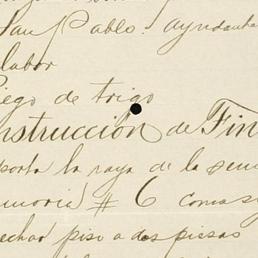 San Pablo. ayudante
labor
riego de trigo
nstrucción de Fin
porta la raya de la sem
emoria # 6 como s
echar piso a dos piezas